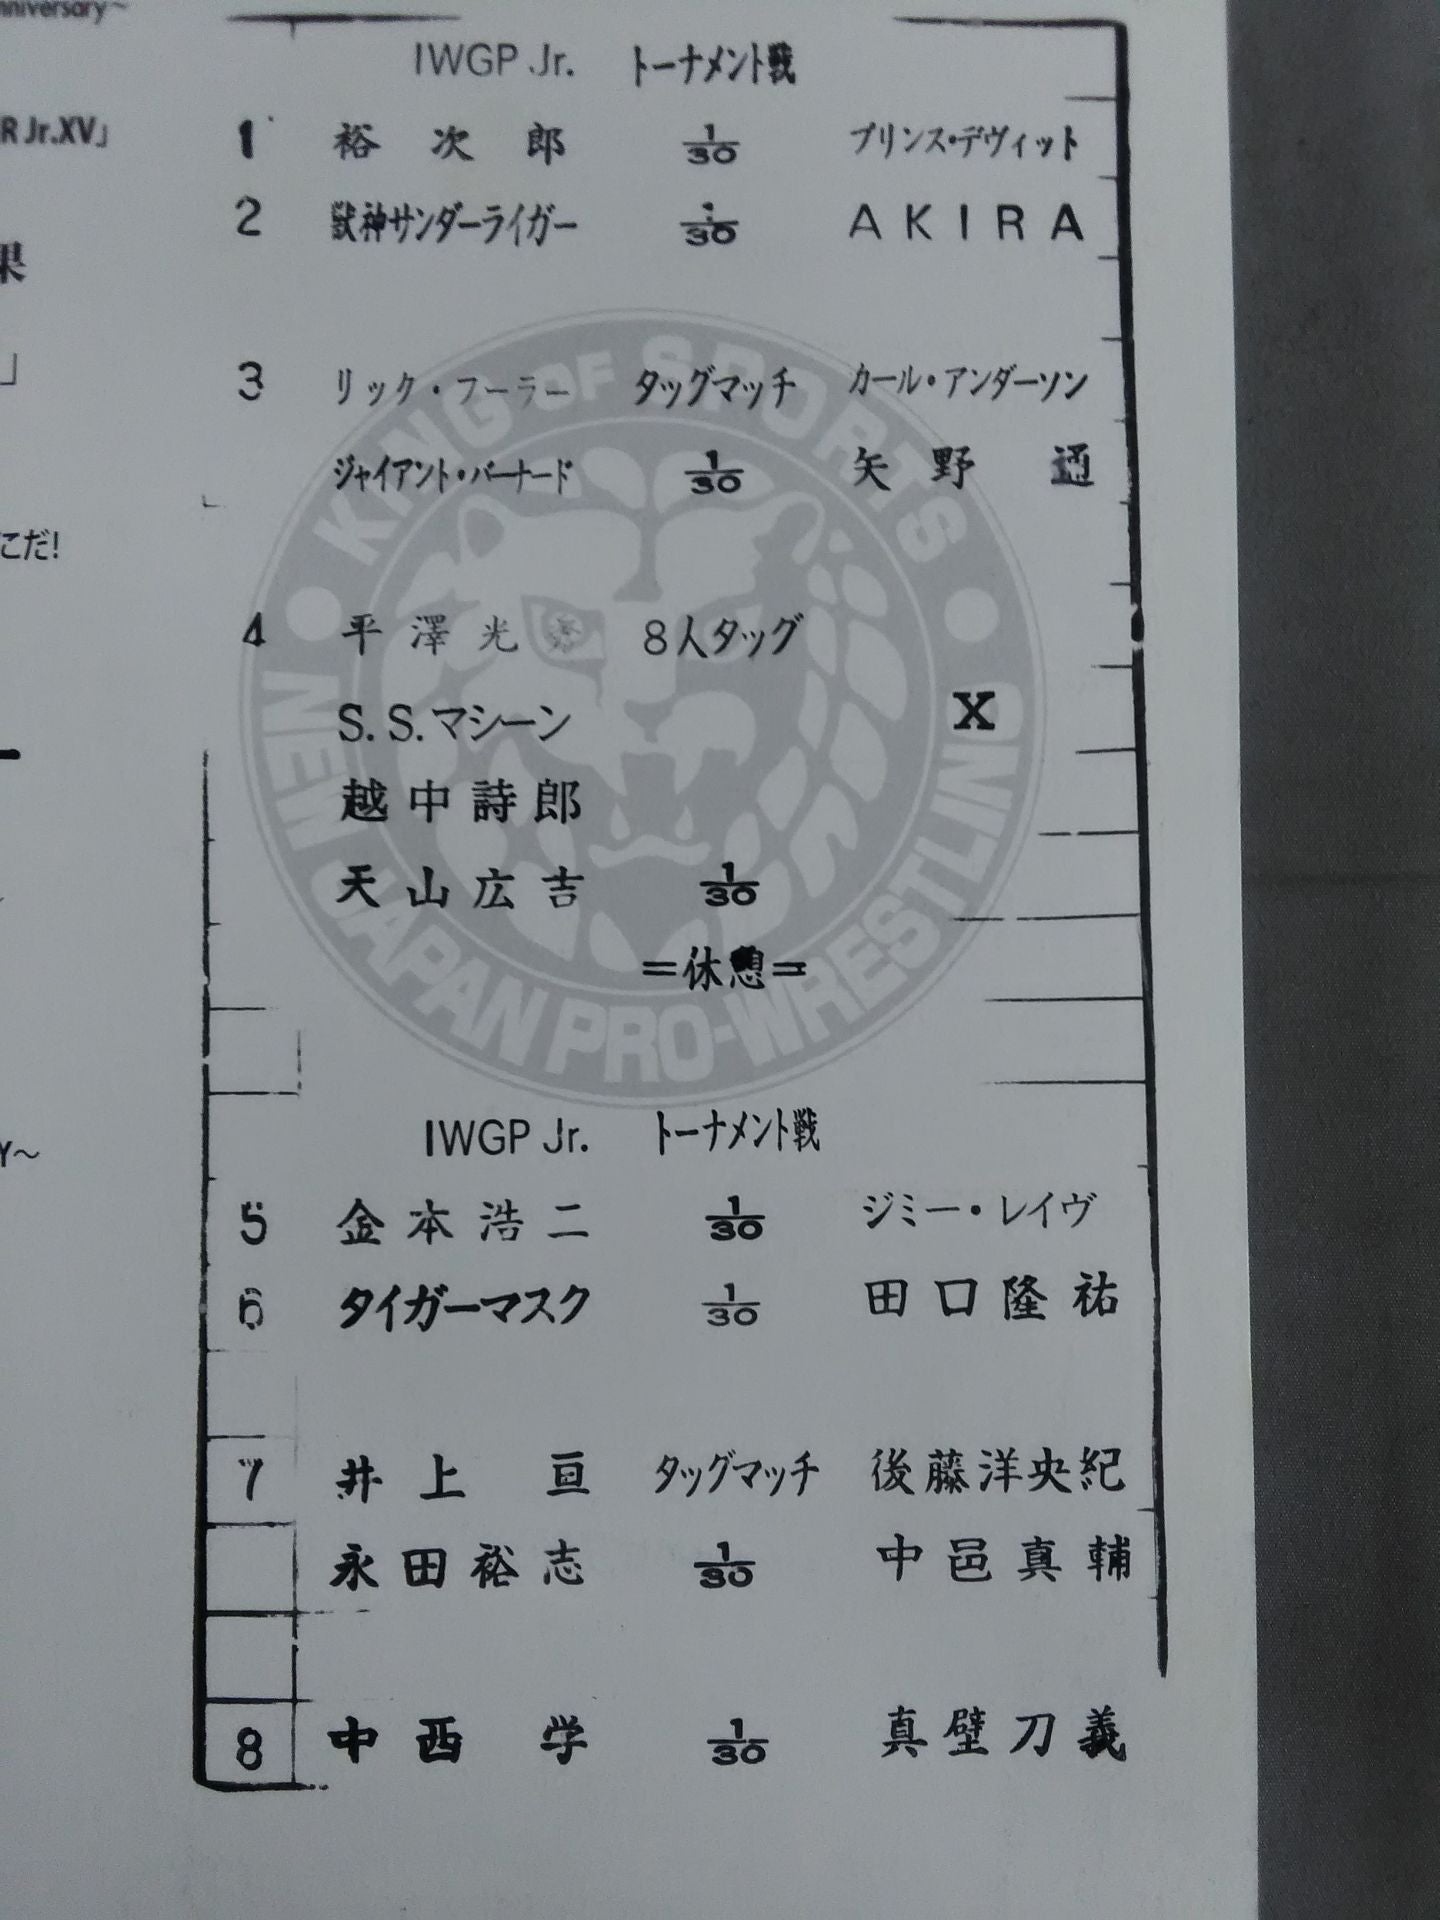 nniversary～
R Jr.XV」
果
」
こだ!
Y～
IWGP Jr. トーナメント戦
1 裕次郎 1/30 プリンス・デヴィット
2 獣神サンダーライガー 1/30 AKIRA
3 リック・フーラー タッグマッチ カール・アンダーソン
ジャイアント・バーナード 1/30 矢野通
4 平澤光秀 8人タッグ
S.S.マシーン X
越中詩郎
天山広吉 1/30
=休憩=
IWGP Jr. トーナメント戦
5 金本浩二 1/30 ジミー・レイヴ
6 タイガーマスク 1/30 田口隆祐
7 井上亘 タッグマッチ 後藤洋央紀
永田裕志 1/30 中邑真輔
8 中西学 1/30 真壁刀義
KING OF SPORTS
NEW JAPAN PRO-WRESTLING